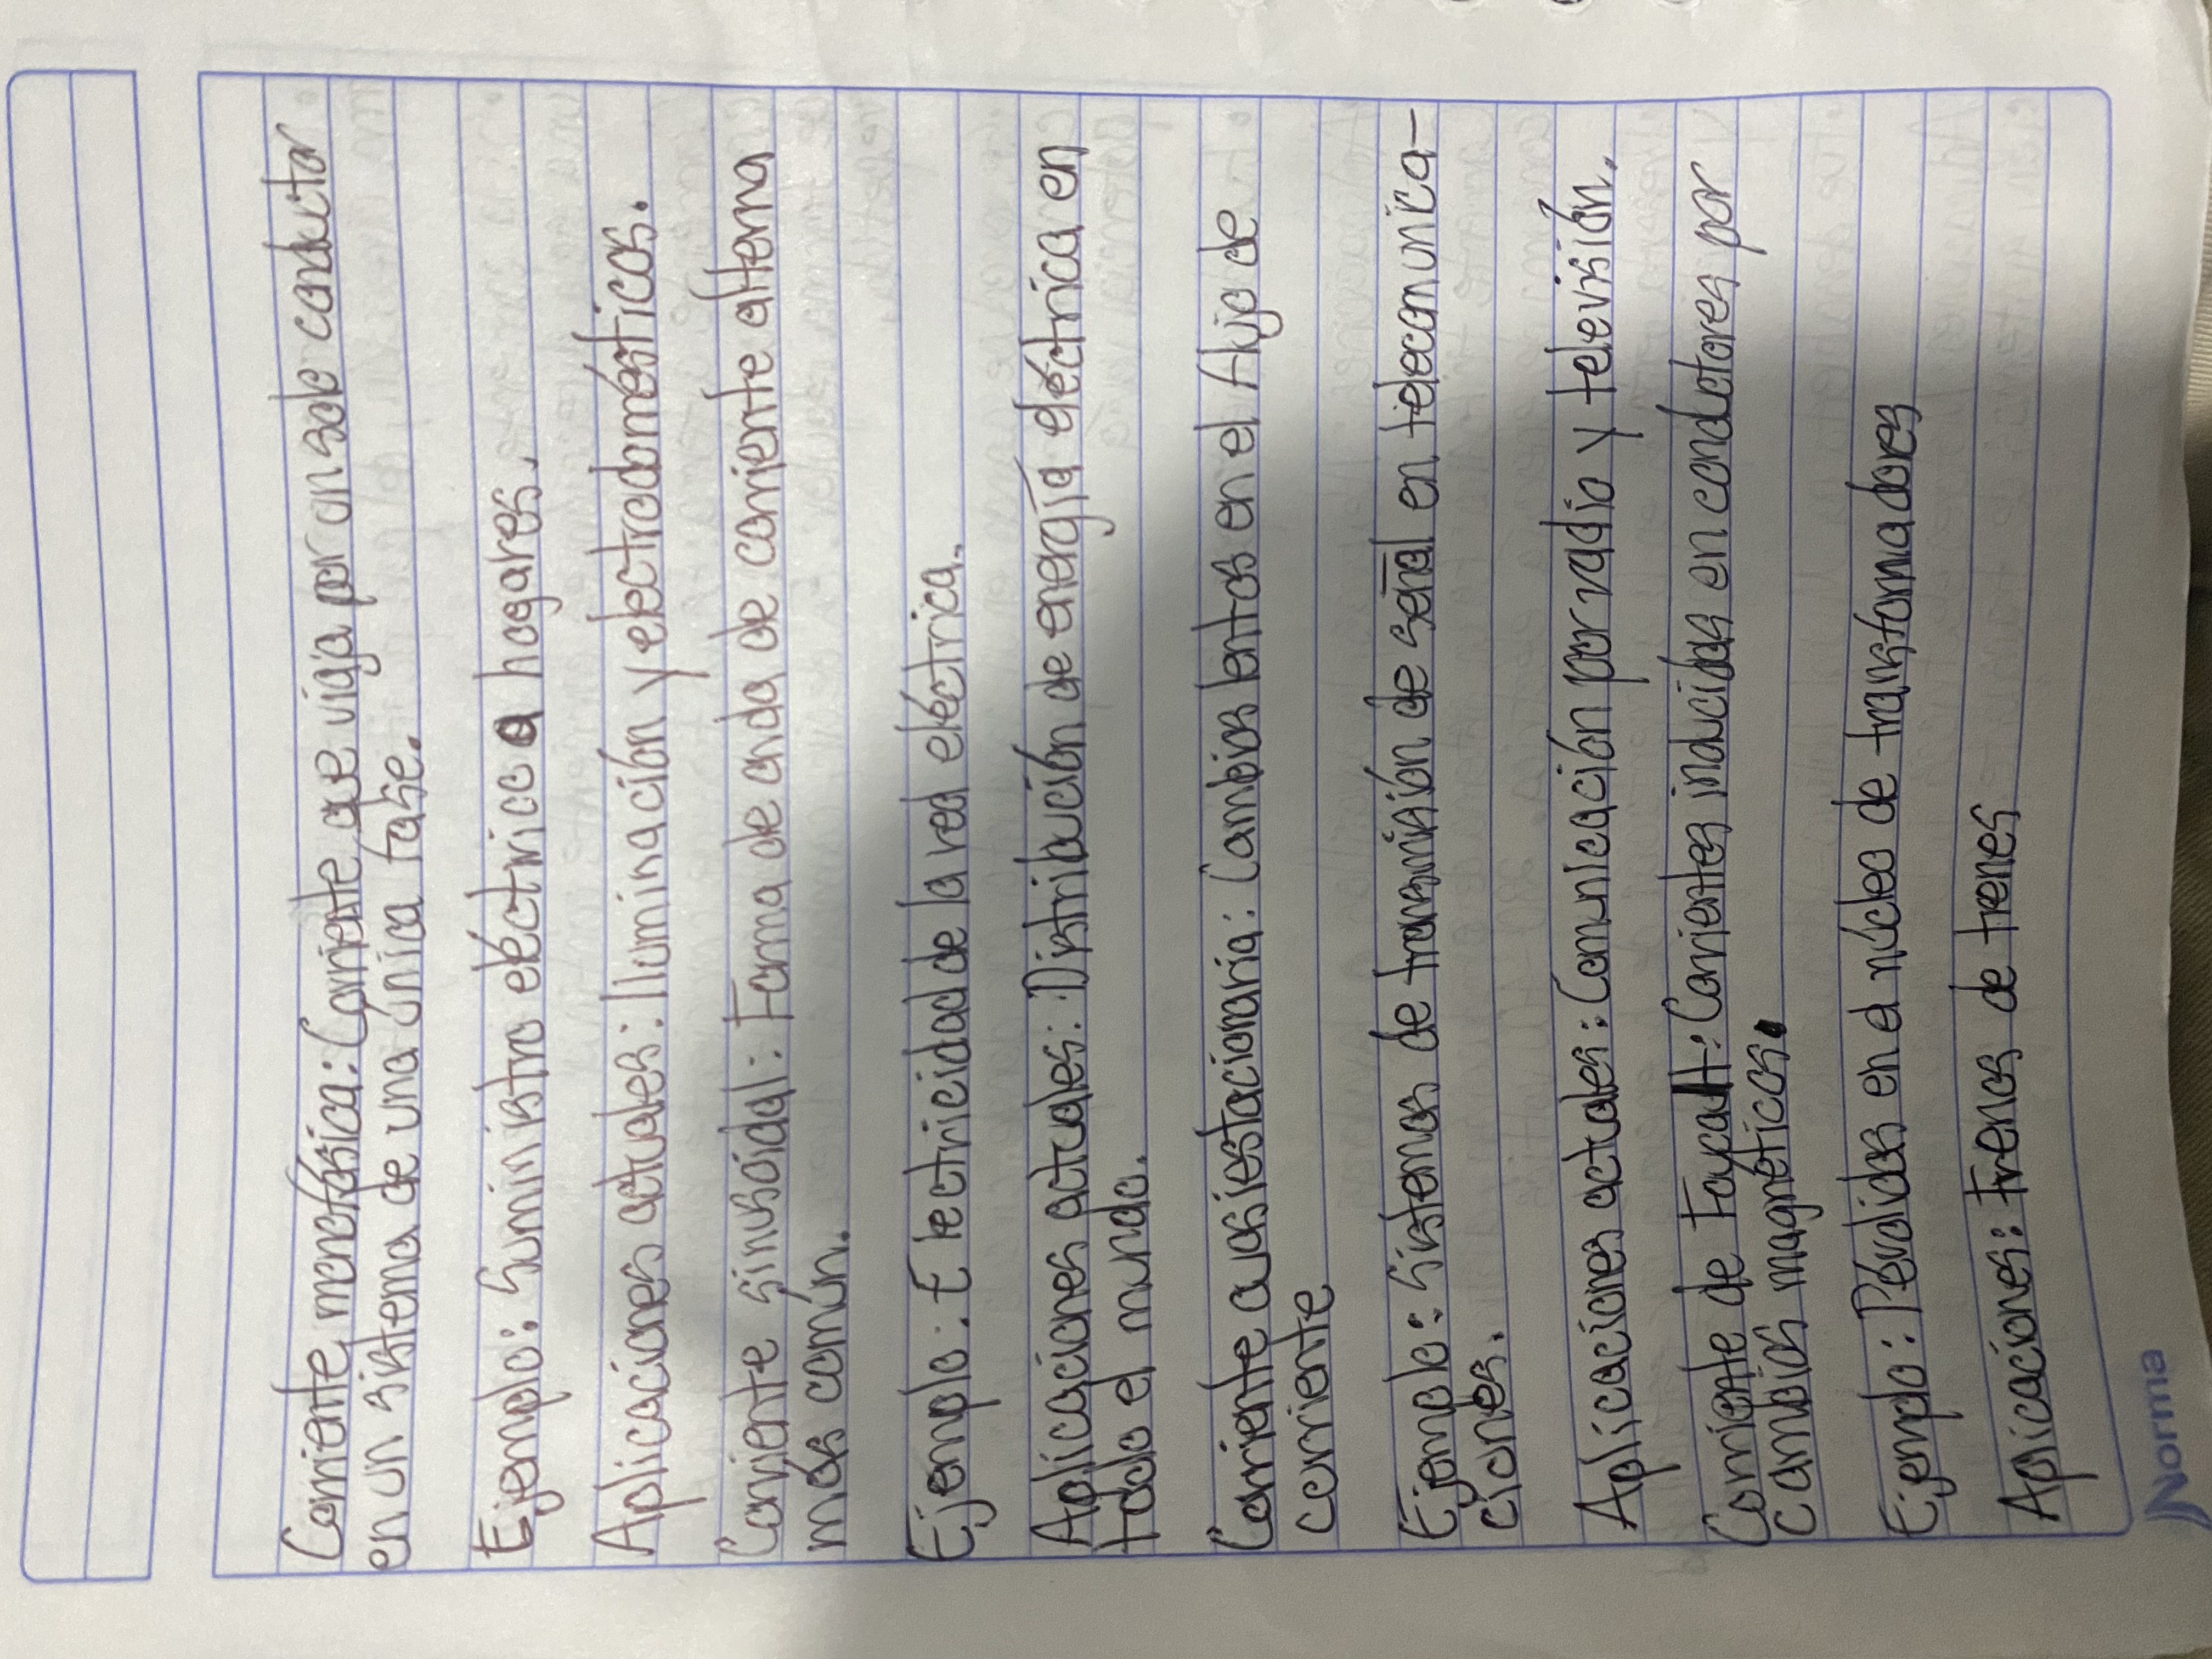 Corriente monofásica: Corriente que viaja por un solo conductor
en un sistema de una única fase.
Ejemplo: Suministro eléctrico a hogares.
Aplicaciones actuales: Iluminación y electrodomésticos.
Corriente sinusoidal: Forma de onda de corriente alterna
más común.
Ejemplo: Electricidad de la red eléctrica.
Aplicaciones actuales: Distribución de energía eléctrica en
todo el mundo.
Corriente quasiestacionaria: Cambios lentos en el flujo de
corriente
Ejemplo: Sistemas de transmisión de señal en telecomunica-
ciones.
Aplicaciones actuales: Comunicación por radio y televisión.
Corriente de Foucault: Corrientes inducidas en conductores por
cambios magnéticos.
Ejemplo: Pérdidas en el núcleo de transformadores
Aplicaciones: Frenos de trenes
Norma